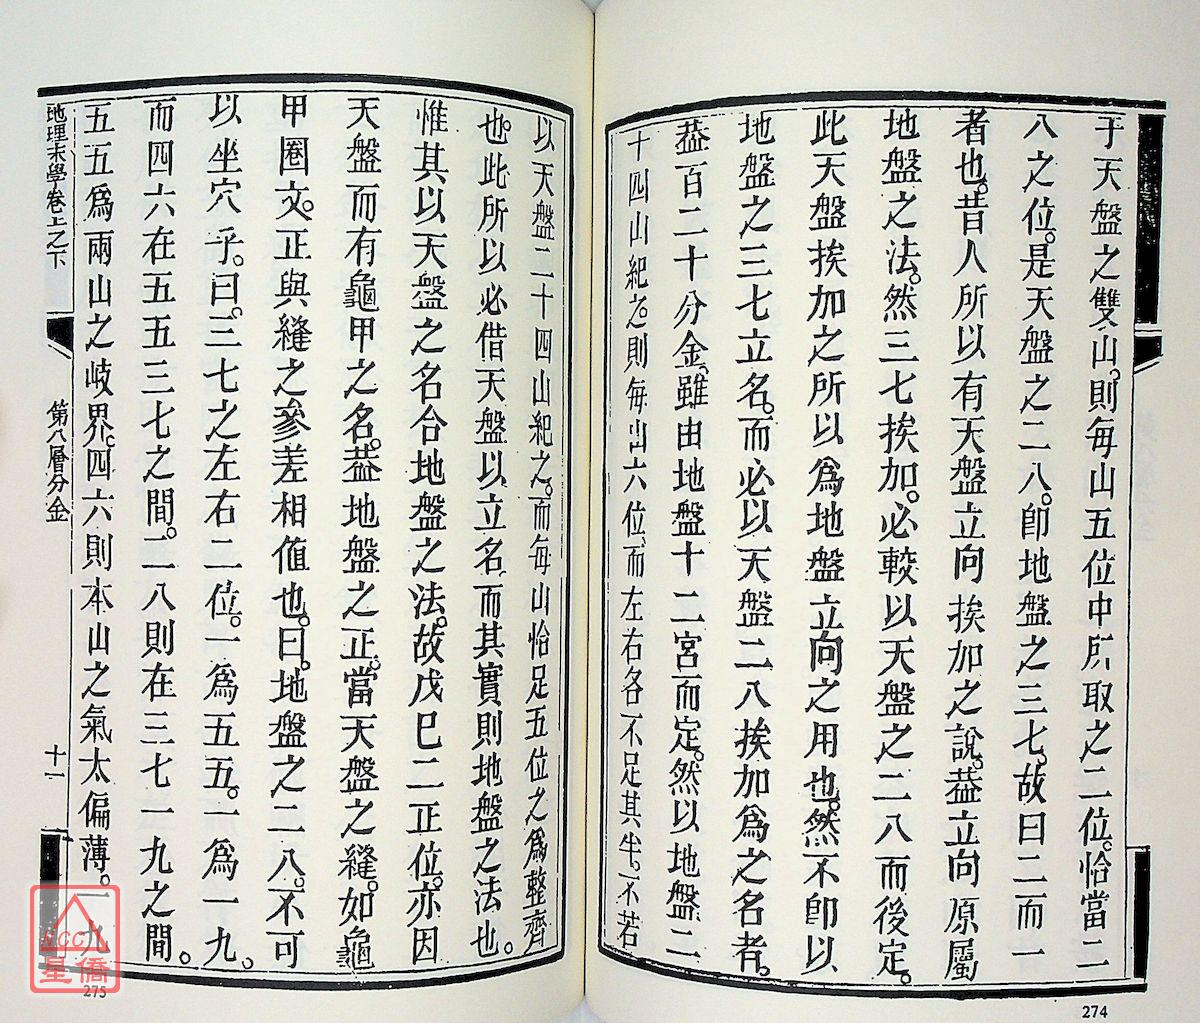 于天盤之雙山。則每山五位中所取之二位。恰當二
八之位。是天盤之二八。卽地盤之三七。故曰二而一
者也。昔人所以有天盤立向挨加之說。葢立向原屬
地盤之法。然三七挨加。必較以天盤之二八而後定。
此天盤挨加之所以爲地盤立向之用也。然不卽以
地盤之三七立名。而必以天盤二八挨加爲之名者。
葢百二十分金。雖由地盤十二宮而定。然以地盤二
十四山紀之。則每山六位。而左右各不足其半。不若
274
以天盤二十四山紀之。而每山恰足五位之爲整齊
也。此所以必借天盤以立名。而其實則地盤之法也。
惟其以天盤之名合地盤之法。故戊巳二正位。亦因
天盤而有龜甲之名。葢地盤之正。當天盤之縫。如龜
甲圈文。正與縫之參差相值也。曰。地盤之二八。不可
以坐穴乎。曰。三七之左右二位。一爲五五。一爲一九。
而四六在五五三七之間。二八則在三七一九之間。
五五爲兩山之歧界。四六則本山之氣太偏薄。一九
地理末學卷上之下
第八層分金
十一
NCC
星僑
275